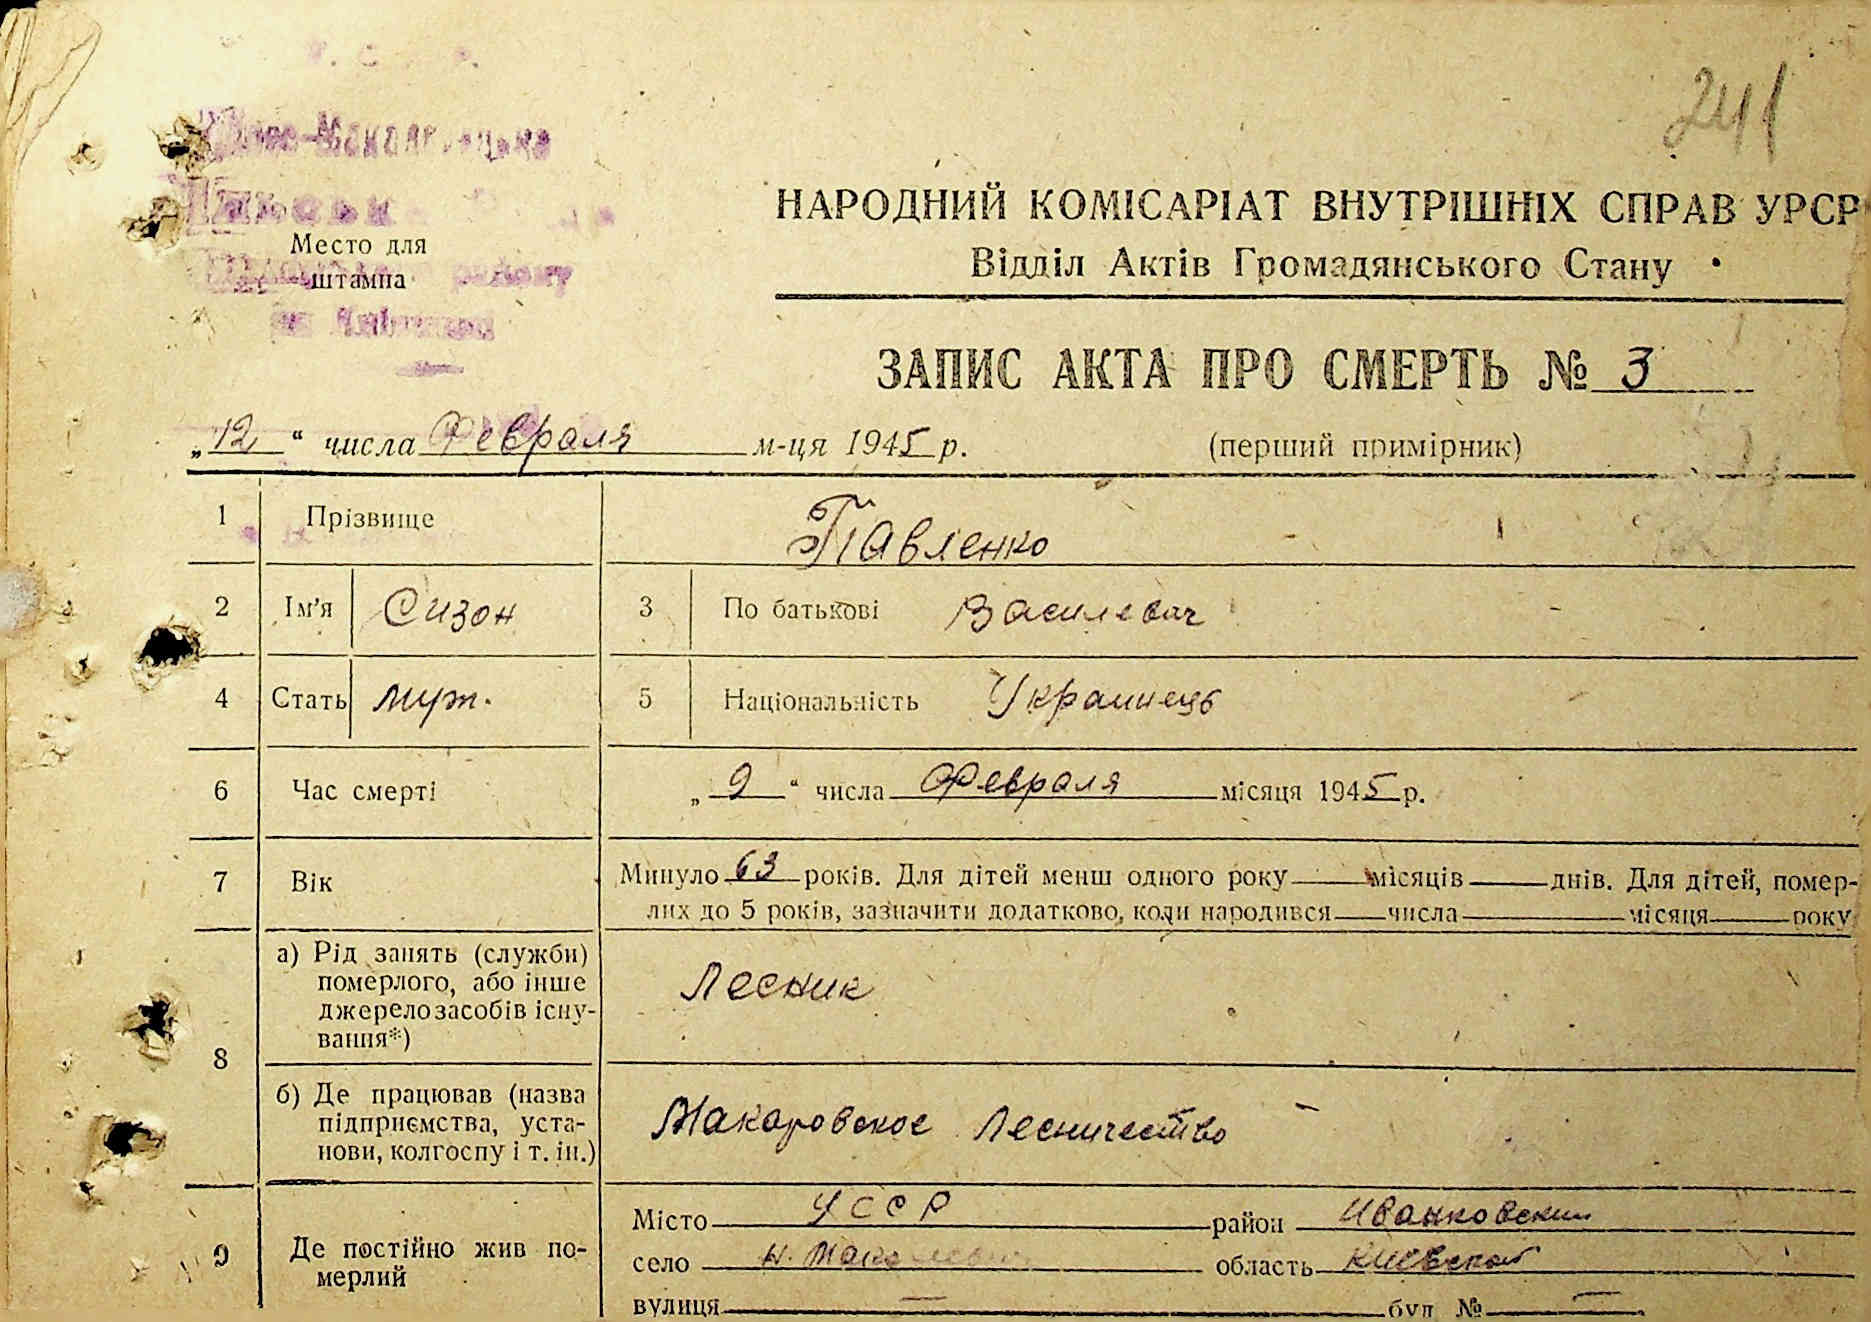 241
Место для
штампа
НАРОДНИЙ КОМІСАРІАТ ВНУТРІШНІХ СПРАВ УРСР
Відділ Актів Громадянського Стану
ЗАПИС АКТА ПРО СМЕРТЬ № 3
„12“ числа Февраля м-ця 1945 р. (перший примірник)
1 Прізвище Павленко
2 Ім'я Сизон 3 По батькові Василевич
4 Стать муж. 5 Національність Украинець
6 Час смерті „9“ числа Февраля місяця 1945 р.
7 Вік Минуло 63 років. Для дітей менш одного року місяців днів. Для дітей, помер-
лих до 5 років, зазначити додатково, коли народився числа місяця року
8 а) Рід занять (служби)
померлого, або інше
джерело засобів існу-
вання*)
Лесник
б) Де працював (назва
підприємства, уста-
нови, колгоспу і т. ін.)
Макаровское Лесничество
9 Де постійно жив по-
мерлий
Місто УССР район Иванковский
село Н. область Киевской
вулиця — буд № —